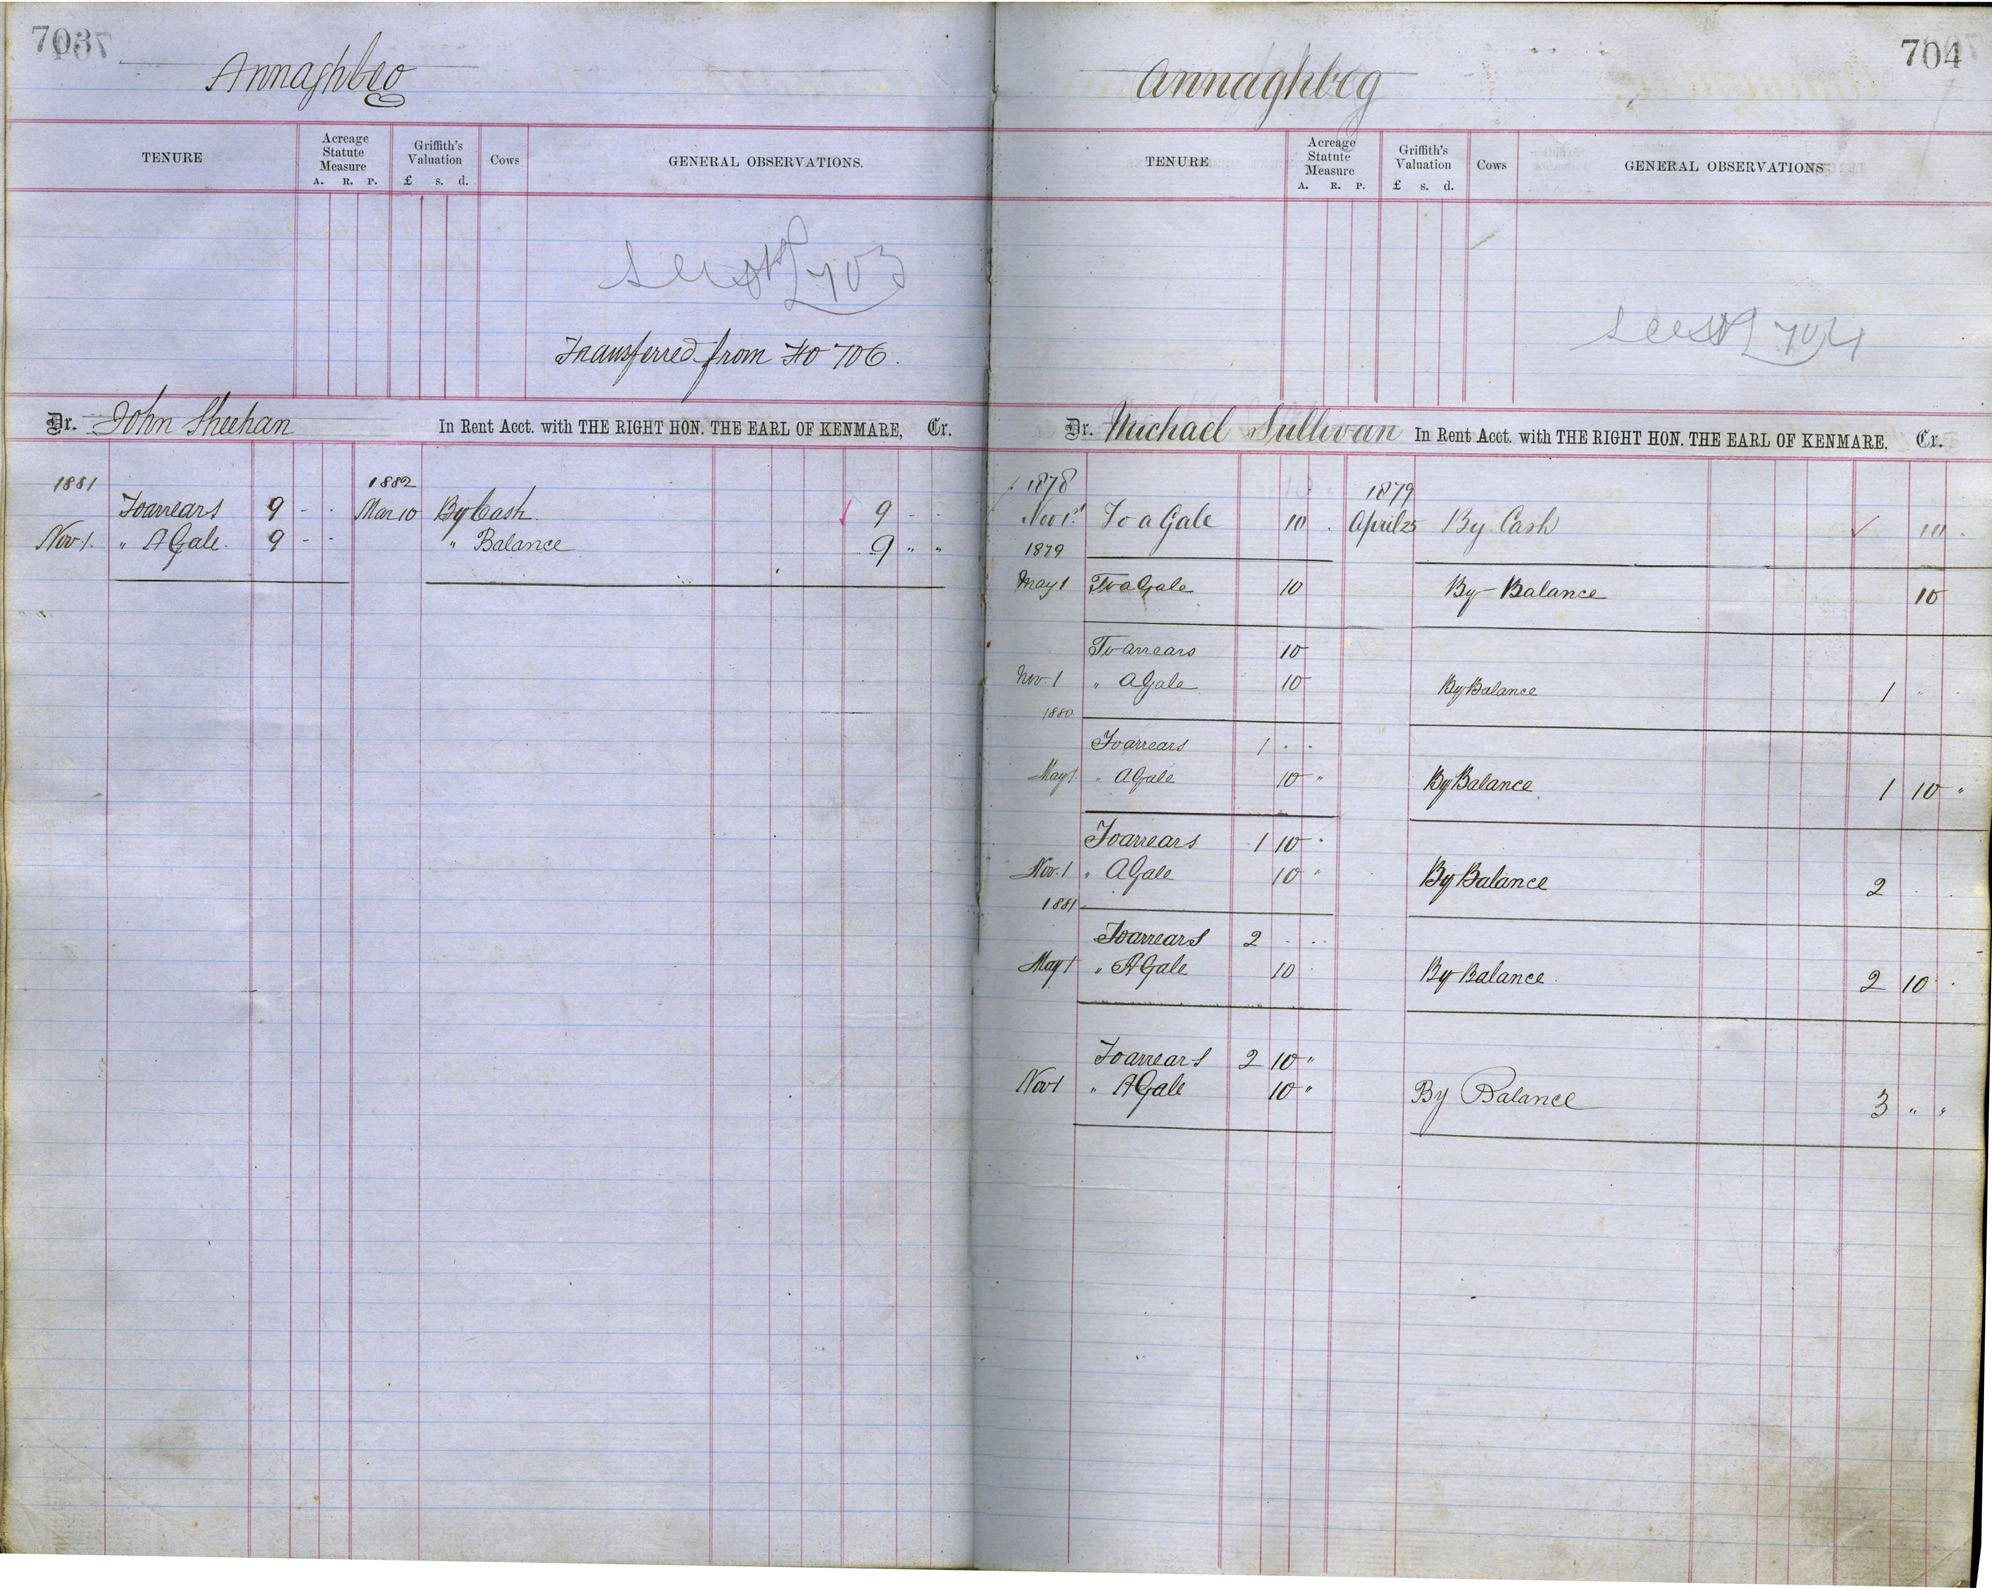 703
Annaghbeg
TENURE
Acreage Statute Measure
A. R. P.
Griffith's Valuation
£ s. d.
Cows
GENERAL OBSERVATIONS.
703
Transferred from Fo 706.
Dr. John Sheehan In Rent Acct. with THE RIGHT HON. THE EARL OF KENMARE, Cr.
1881 1882
To arrears 9 - - Mar 10 By Cash 9 - -
Nov 1. " A Gale. 9 - - " Balance 9 " "
704
Annaghbeg
TENURE
Acreage Statute Measure
A. R. P.
Griffith's Valuation
£ s. d.
Cows
GENERAL OBSERVATIONS
704
Dr. Michael Sullivan In Rent Acct. with THE RIGHT HON. THE EARL OF KENMARE, Cr.
1878 1879
Nov 1st To a Gale 10 . April 25 By Cash 10 .
1879
May 1 To a Gale 10 By Balance 10
To arrears 10
Nov. 1 " A Gale 10 By Balance 1 " .
1880
To arrears 1 . .
May 1 " A Gale 10 " By Balance 1 10 "
To arrears 1 10 "
Nov. 1 " A Gale 10 " By Balance 2 . .
1881
To arrears 2 . . 
May 1 " A Gale 10 . By Balance. 2 10 .
To arrears 2 10 "
Nov 1 " A Gale 10 " By Balance 3 " "